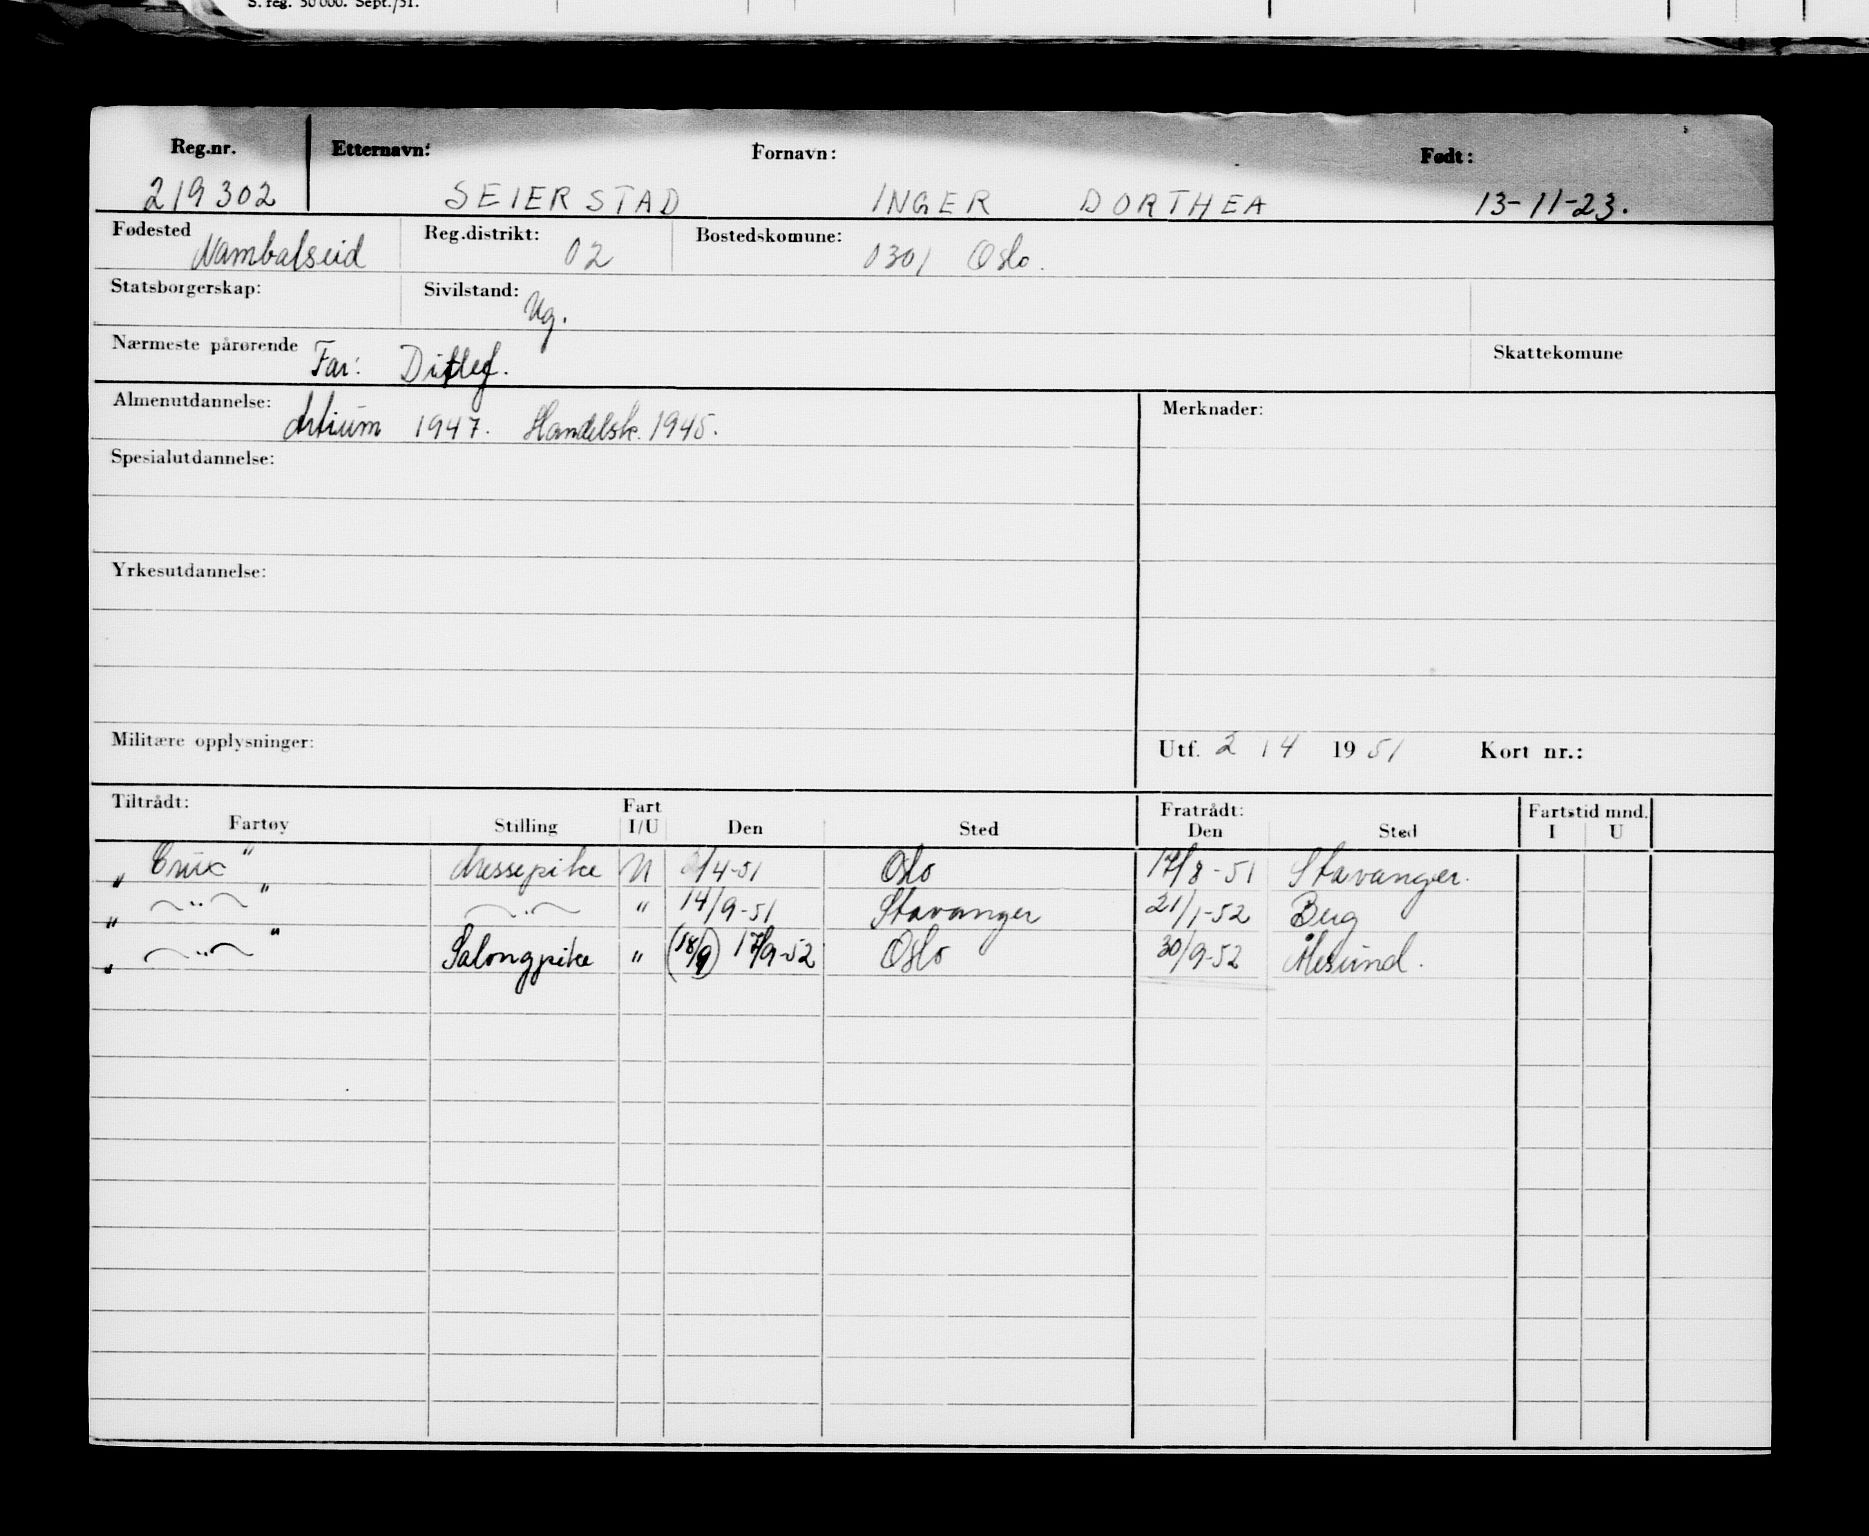 S. reg. 50 000. Sept./51.
Reg.nr. Etternavn: Fornavn: Født:
219302 SEIERSTAD INGER DORTHEA 13-11-23.
Fødested Reg.distrikt: 02 Bostedskomune: 0301 Oslo.
Statsborgerskap: Sivilstand: Ug.
Nærmeste pårørende Far: Ditlef. Skattekomune
Almenutdannelse: Artium 1947. Handelsk. 1945. Merknader:
Spesialutdannelse:
Yrkesutdannelse:
Militære opplysninger: Utf. 2 / 4 1951 Kort nr.:
Tiltrådt: Fart Fratrådt: Fartstid mnd.
Fartøy Stilling I/U Den Sted Den Sted I U
„ Crux " Messepike U /4-51 Oslo 17/8-51 Stavanger.
„ —"— " —"— " 14/9-51 Stavanger 21/1-52
„ —"— " Salongpike " (18/9) 17/9-52 Oslo 30/9-52 Ålesund.